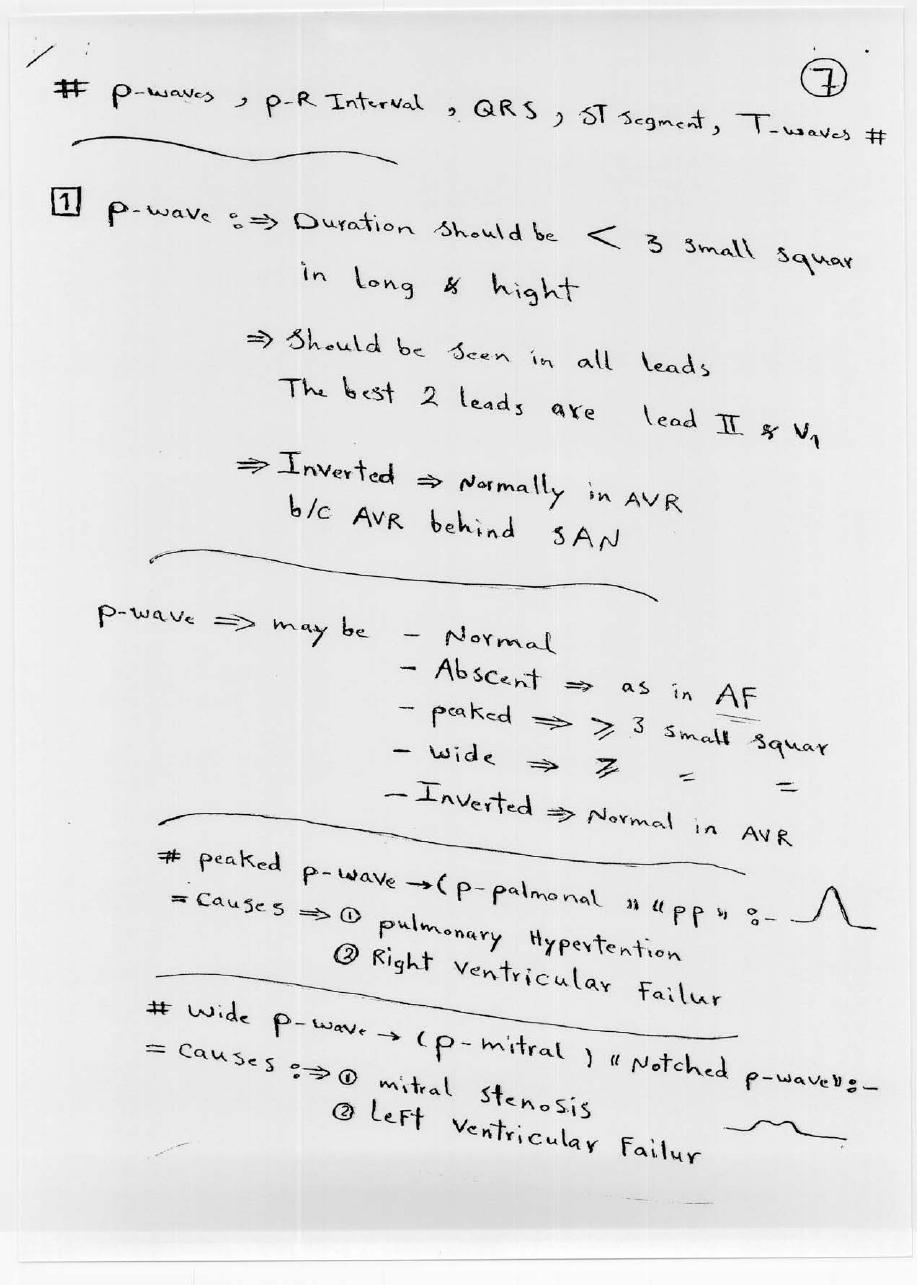 7
# p-waves , p-R Interval , QRS , ST segment , T-waves #
1 p-wave :⇒ Duration should be < 3 small squar
in long & hight
⇒ Should be seen in all leads
The best 2 leads are lead II & V1
⇒ Inverted ⇒ Normally in AVR
b/c AVR behind SAN
p-wave ⇒ may be - Normal
- Abscent ⇒ as in AF
- peaked ⇒ ≥ 3 small squar
- wide ⇒ ≥ = =
- Inverted ⇒ Normal in AVR
# peaked p-wave → ( p-palmonal " "pp" :-
= Causes ⇒ ① pulmonary Hypertention
② Right ventricular Failur
# wide p-wave → ( p-mitral ) " Notched p-wave" :-
= Causes :⇒ ① mitral stenosis
② Left ventricular Failur